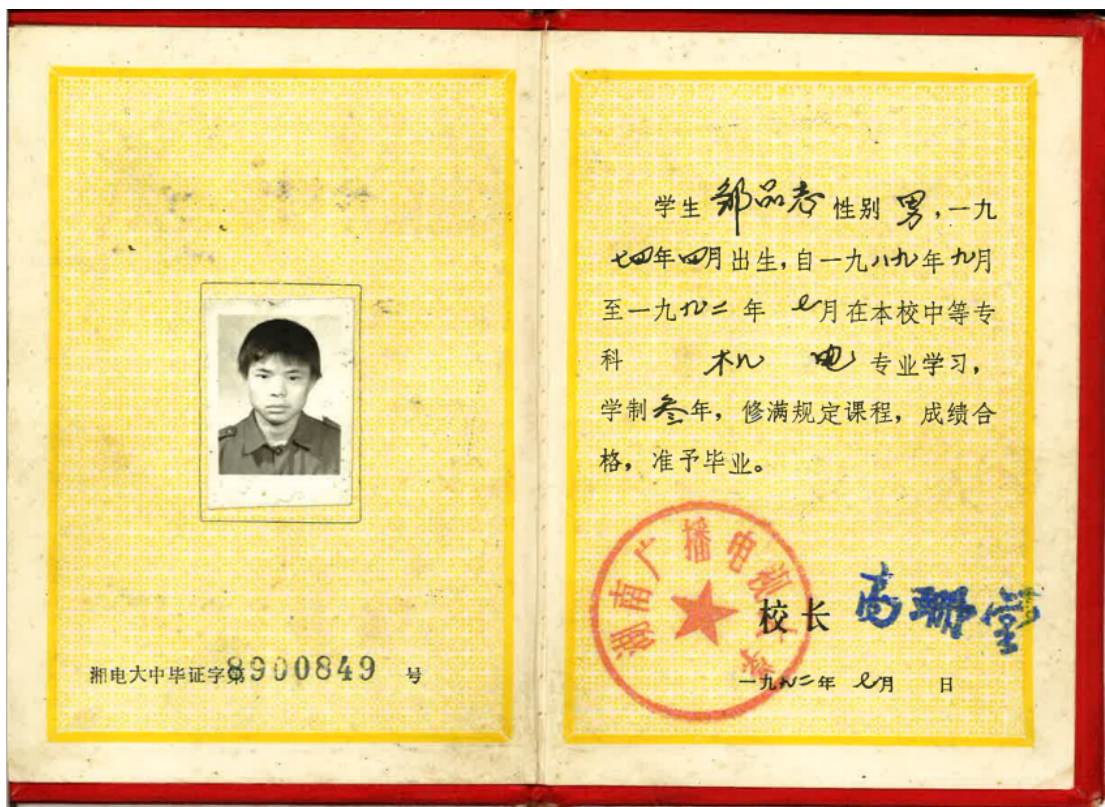 湘电大中毕证字第8900849 号
学生 邹品志 性别 男,一九
七四年四月出生,自一九八九年九月
至一九九二 年 七月在本校中等专
科 机 电 专业学习,
学制叁年,修满规定课程,成绩合
格,准予毕业。
湖南广播电视大学
校长 高珊堂
一九九二年 七月 日